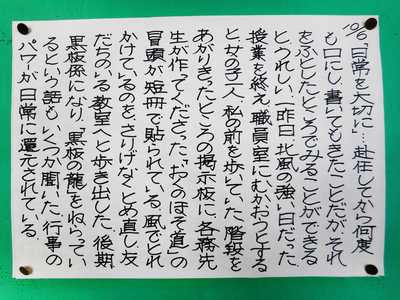 10/6「日常を大切に」:赴任してから何度
も口にし、書いてもきたことだが、それ
をふとしたところでみることができる
と、うれしい。一昨日、北風の強い日だった。
授業を終え、職員室にむかおうとする
と、女の子二人、私の前を歩いていた。階段を
あがりきったところの掲示板に、各務先
生が作ってくださった、『おくのほそ道』の
冒頭が短冊で貼られている。風でとれ
かけているのを、さりげなくとめ直し、友
だちのいる教室へと歩き出した。後期
黒板係になり、「黒板の龍」をねらってい
るという話もいくつか聞いた。行事の
パワーが日常に還元されている。